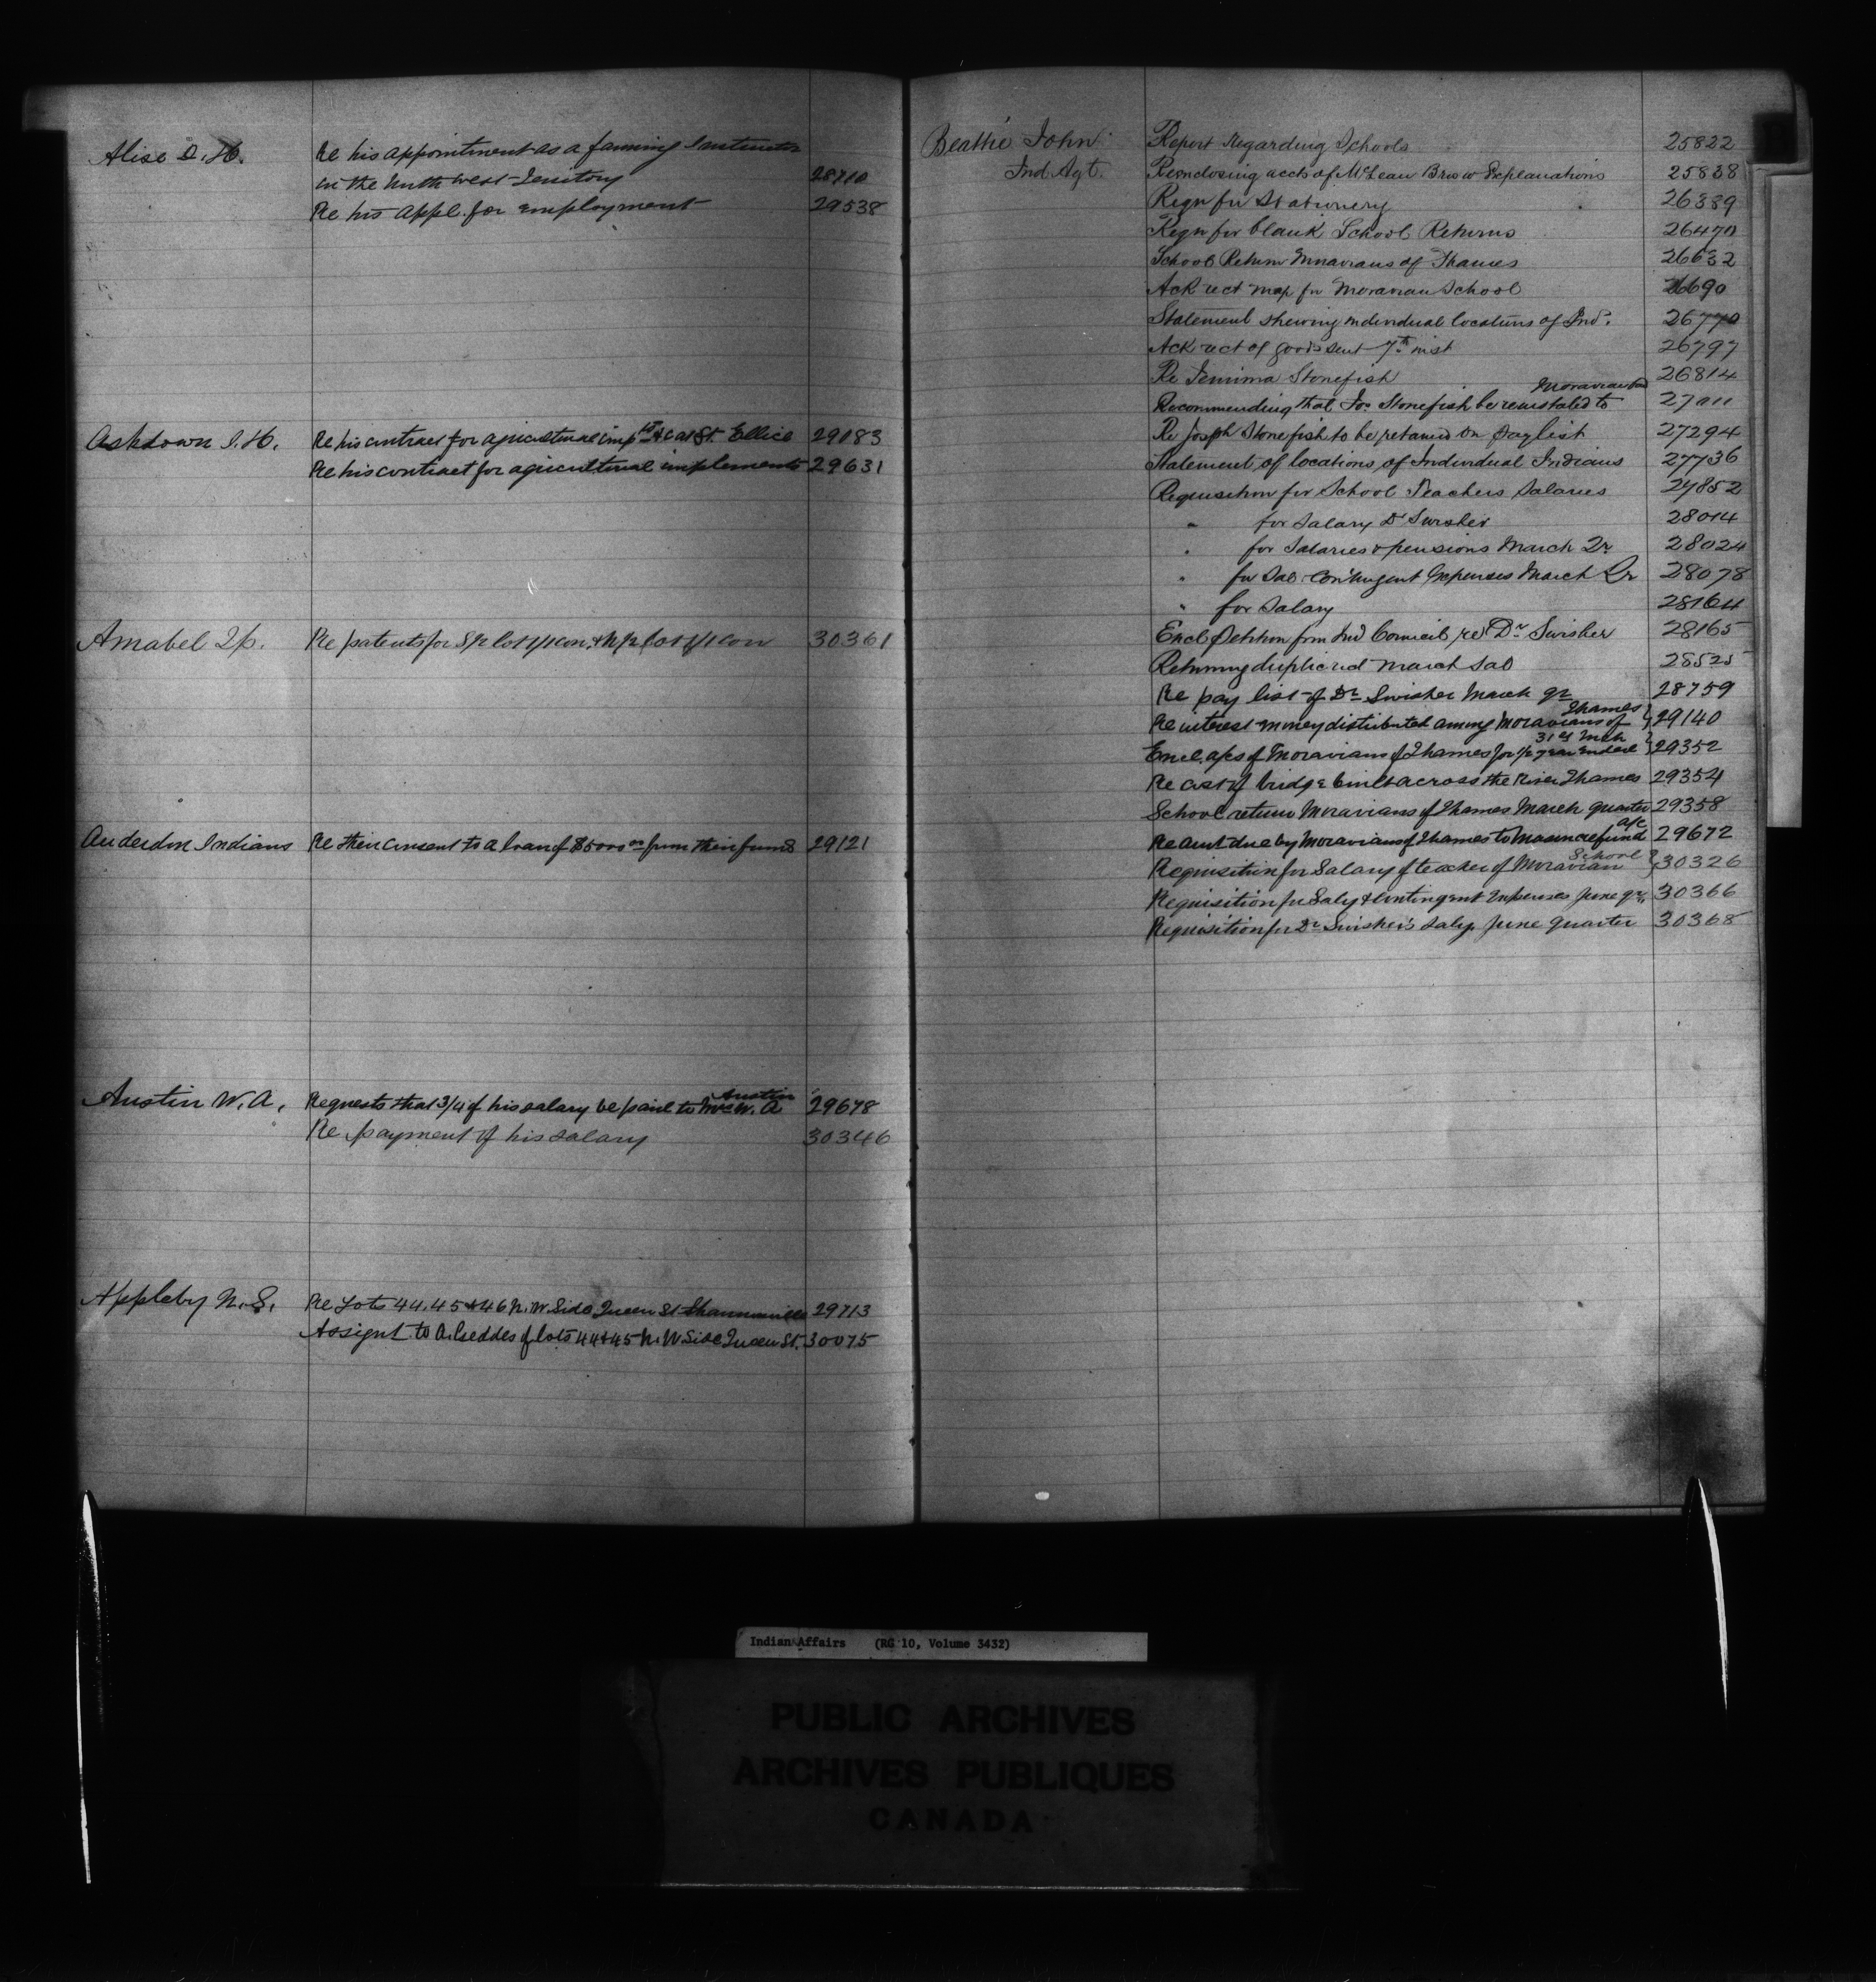 Alise D. H. Re his appointment as a farming Instructor
in the North West Territory 28710
Re his appl. for employment 29538
Ashdown J. H. Re his contract for agricultural impts &c at Ft. Ellice 29183
Re his contract for agricultural implements 29631
Amabel Tp. Re patents for 30361
Anderdon Indians Re their consent to a loan of $5000 00 from their funds 29121
Austin W. A. Requests that 3/4 of his salary be paid to Mrs W. A. Austin 29678
Re payment of his salary 30346
Appleby N. S. Re Lots 44, 45 & 46 N. W. Side Queen St Shannonville 29713
Assignt to A. Geddes of lots 44 & 45 N. W Side Queen St. 30075
Beattie John Report Regarding Schools 25822
Ind. Agt. Reenclosing accts of McLean Bros w Explanations 25838
Reqn for Stationery 26339
Reqn for blank School Returns 26470
School Return Moravians of Thames 26632
Ack rect map for Moravian School 26690
Statement shewing individual locations of Inds. 26770
Ack rect of goods sent 7th inst 26797
Re Jemima Stonefish 26814
Recommending that Jos Stonefish be reinstated to Moravian band 27011
Re Joseph Stonefish to be retained on Paylist 27294
Statement of locations of Individual Indians 27736
Requisition for School Teachers Salaries 27852
" for Salary Dr Swisher 28014
" for Salaries & pensions March Qr 28024
" for Sal & Contingent Expenses March Qr 28078
" for Salary 28164
Encl Petition from Ind Council re Dr Swisher 28165
Returning duplic red March Sal 28525
Re pay list of Dr Swisher March qr 28759
Re interest money distributed among Moravians of Thames 29140
Encl. a/cs of Moravians of Thames for 1/2 year ended 31st Mch 29352
Re cost of bridge built across the River Thames 29354
School return Moravians of Thames March quarter 29358
Re amt due by Moravians of Thames to refund a/c 29672
Requisition for Salary of teacher of Moravian School 30326
Requisition for Saly & Contingent Expenses June qr. 30366
Requisition for Dr Swisher's Saly. June quarter 30368
Indian Affairs (RG 10, Volume 3432)
PUBLIC ARCHIVES
ARCHIVES PUBLIQUES
CANADA